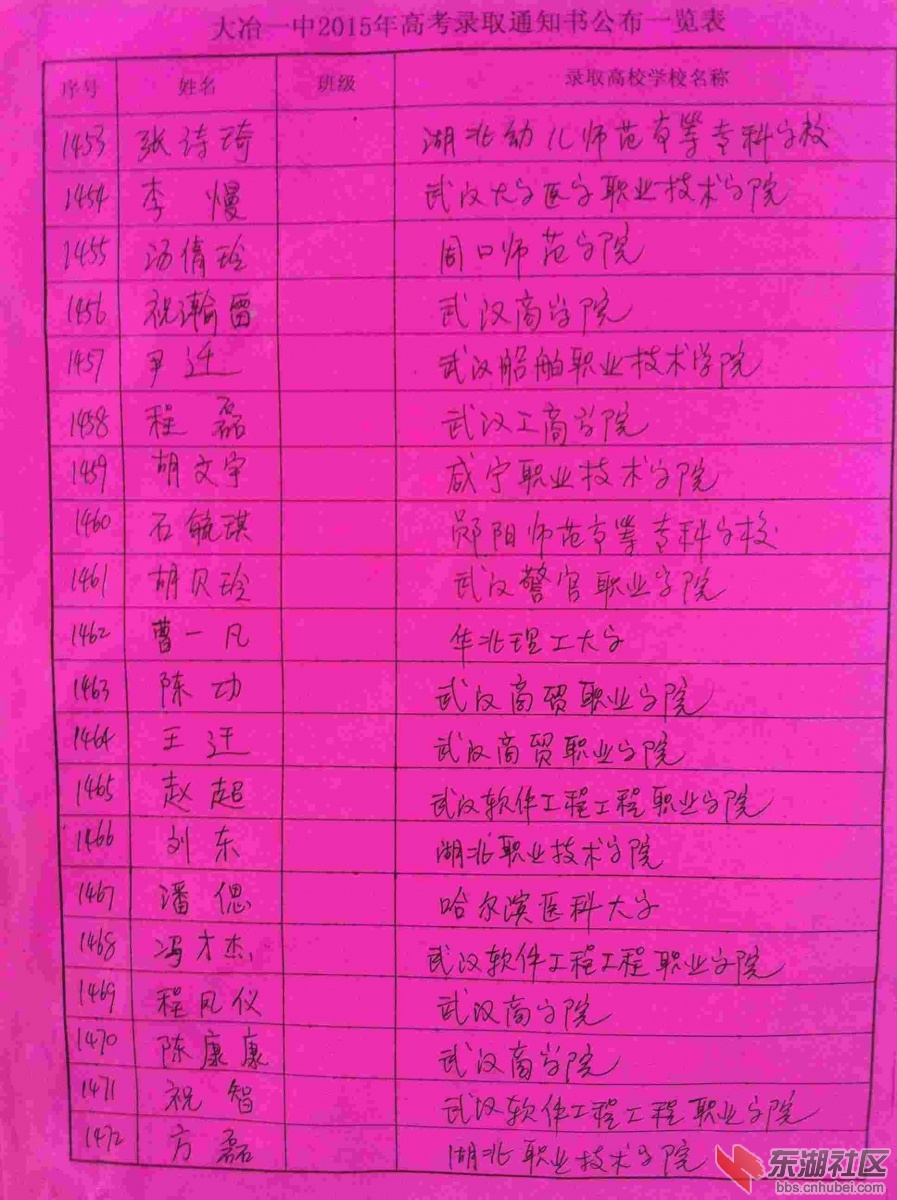 大冶一中2015年高考录取通知书公布一览表
序号 姓名 班级 录取高校学校名称
1453 张诗琦 湖北幼儿师范高等专科学校
1454 李熳 武汉大学医学职业技术学院
1455 汤倩玲 周口师范学院
1456 祝瀚雷 武汉商学院
1457 尹迁 武汉船舶职业技术学院
1458 程磊 武汉工商学院
1459 胡文宇 咸宁职业技术学院
1460 石毓琪 郧阳师范高等专科学校
1461 胡贝玲 武汉警官职业学院
1462 曹一凡 华北理工大学
1463 陈功 武汉商贸职业学院
1464 王迁 武汉商贸职业学院
1465 赵超 武汉软件工程工程职业学院
1466 刘东 湖北职业技术学院
1467 潘偲 哈尔滨医科大学
1468 冯才杰 武汉软件工程工程职业学院
1469 程风仪 武汉商学院
1470 陈康康 武汉商学院
1471 祝智 武汉软件工程工程职业学院
1472 方磊 湖北职业技术学院
东湖社区
bbs.cnhubei.com